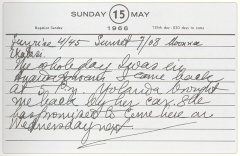 SUNDAY 15 MAY
Rogation Sunday
1966
135th day - 230 days to come
Sunrise 4/45 Sunset 7/08
The whole day I was in
I come back
at 5 P.M. Yolanda brought
me back by her car. She
has promised to come here on
Wednesday next